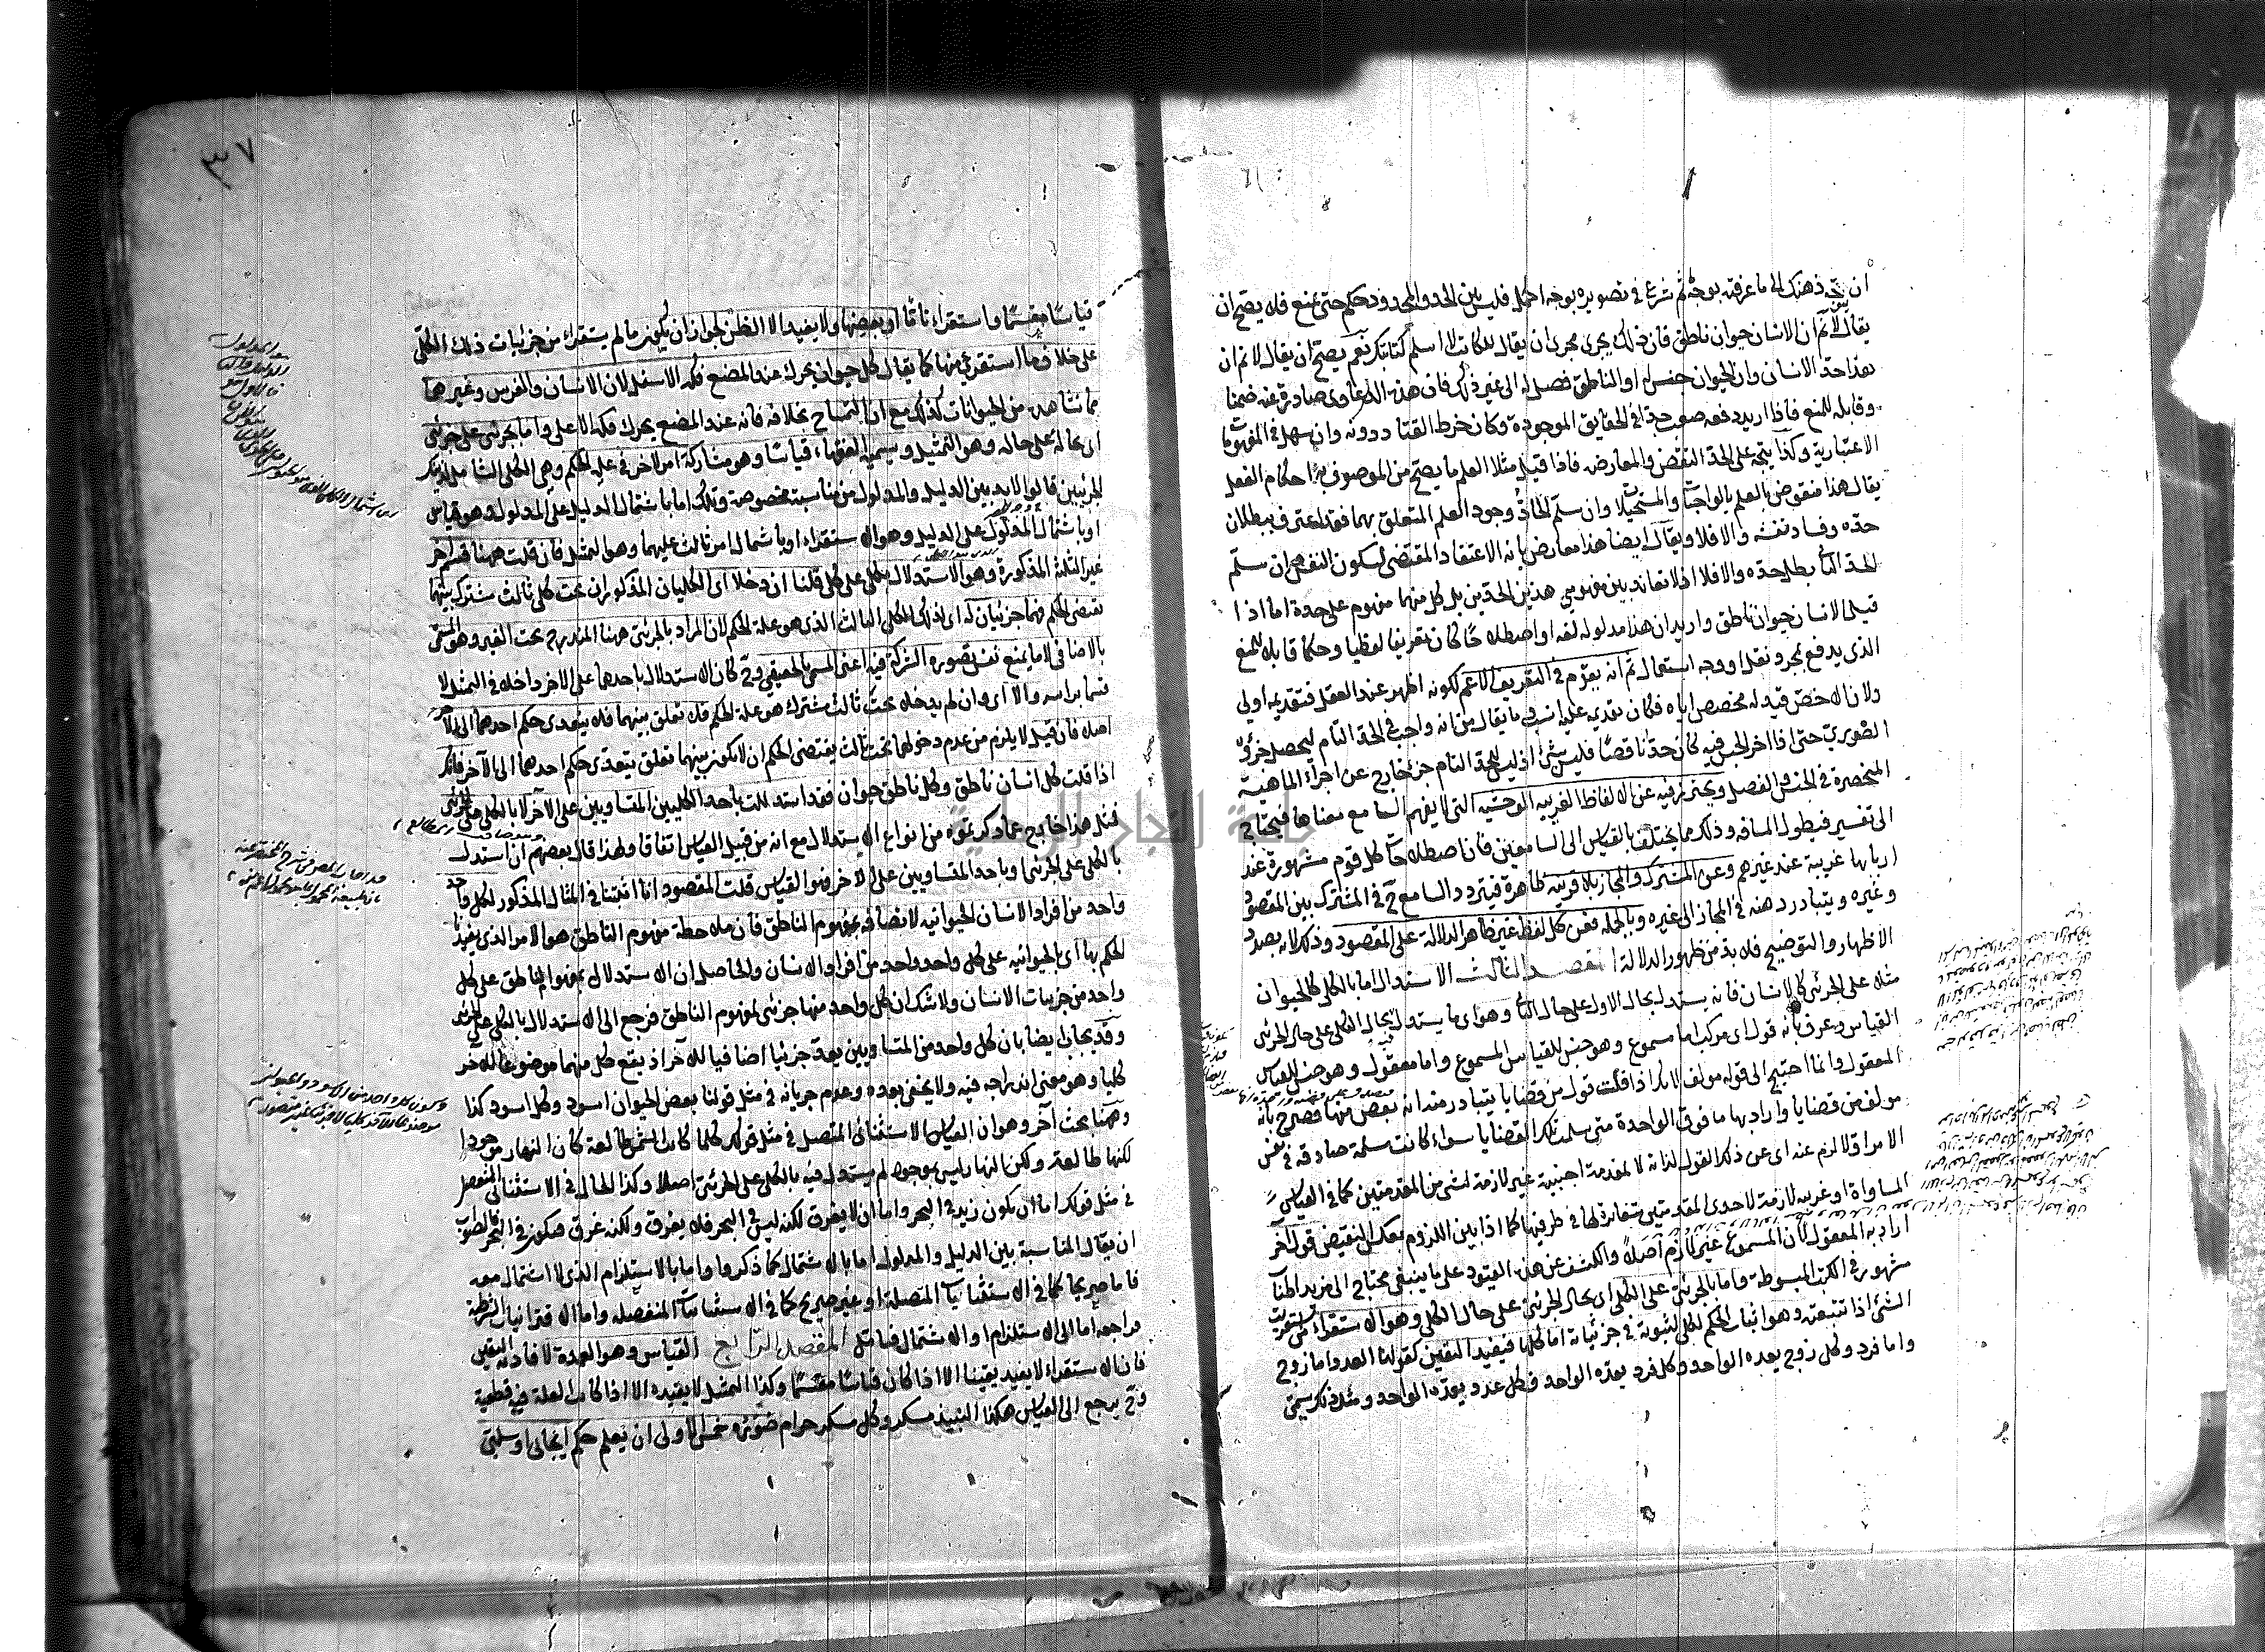 ان يتوجه ذهنك الى ما عرفته بوجه ثم شرع في تصويره بوجه اكمل فليس بين الحد والمحدود حكم حتى يمنع فلا يصح ان
يقال لا نم ان الانسان حيوان ناطق فان ذلك يجري مجرى ان يقال للكاتب لا اسلم كتابتك نعم يصح ان يقال لا نم ان
هذا حد الانسان وان الحيوان جنس له او الناطق فصل له الى غير ذلك فان هذه الدعاوى صادرة عنه ضمنا
وقابلة للمنع فاذا اريد دفعه صعب جدا في الحقايق الموجودة وكان خرط القتاد دونه وان سهل في المفهومات
الاعتبارية وكذا يتجه على الحد النقض والمعارضة فاذا قيل مثلا العلم ما يصح من الموصوف به احكام الفعل
يقال هذا منقوض بالعلم بالواجبات والمستحيلات وان سلم الحاد وجود العلم المتعلق بهما فقد اعترف ببطلان
حده وفساد نقشه والا فلا ويقال ايضا هذا معارض بانه الاعتقاد المقتضي لسكون النفس فان سلم
الحد الثاني بطل حده والا فلا اذ لا تعاند بين مفهومي هذين الحدين بل كل منهما مفهوم على حدة اما اذا
قيل الانسان حيوان ناطق واريد ان هذا مدلوله لغة او اصطلاحا كان تعريفا لفظيا وحكما قابلا للمنع
الذي يدفع بمجرد نقل او وجه استعمال ثم انه يقدم في التعريف الاعم لكونه اظهر عند العقل فتقديمه اولى
ولان الاخص قيد له مخصص اياه فكان تقديمه عليه انسب وما يقال من انه واجب في الحد التام ليحصل جزؤه
الصوري حتى اذا اخر الجنس فيه كان حدا ناقصا فليس بشئ اذ ليس للحد التام جزء خارج عن اجزاء الماهية
المنحصرة في الجنس والفصل ويحترز فيه عن الالفاظ الغريبة الوحشية التي لا يفهم السامع معناها فيحتاج
الى تفسير فيطول المسافة وذلك مما يختلف بالقياس الى السامعين فان اصطلاحات كل قوم مشهورة عند
اربابها غريبة عند غيرهم وعن المشترك والمجاز بلا قرينة ظاهرة فيتردد السامع في المشترك بين المقصود
وغيره ويتبادر ذهنه في المجاز الى غيره وبالجملة فعن كل لفظ غير ظاهر الدلالة على المقصود وذلك لانه بصدد
الاظهار والتوضيح فلا بد من ظهور الدلالة المقصد الثالث الاستدلال اما بالكلي كالحيوان
مثلا على الجزئي كالانسان فانه يستدل بحال الاول على حال الثاني وهو اي ما يستدل فيه بحال الكلي على حال الجزئي
القياس وعرف بانه قول اي مركب اما مسموع وهو جنس للقياس المسموع واما معقول وهو جنس للقياس
المعقول وانما احتيج الى قوله مؤلف لانك اذا قلت قول من قضايا يتبادر منه انه بعض منها فصرح بانه
مؤلف من قضايا وارا د بها ما فوق الواحدة متى سلمت تلك القضايا سواء كانت مسلمة صادقة في نفس
الامر او لا لزم عنه اي عن ذلك القول لذاته لا لمقدمة اجنبية غير لازمة لشئ من المقدمتين كما في القياس
المساواة او غريبة لازمة لاحدى المقدمتين متغايرة لها في طرفيها كما اذا بين اللزوم بعكس النقيض قول آخر
اراد به المعقول لان المسموع غير لازم اصلا والكشف عن هذه القيود على ما ينبغي محتاج الى مزيد اطناب
مشهور في الكتب المبسوطة واما بالجزئي على الكلي اي بحال الجزئي على حال الكلي وهو الاستقراء من استقريت
الشئ اذا تتبعته وهو اثبات الحكم لكلي لثبوته في جزئياته اما كلها فيفيد اليقين كقولنا العدد اما زوج
واما فرد وكل زوج يعده الواحد وكل فرد يعده الواحد فكل عدد يعده الواحد ومثل ذلك يسمى
٣٧
قياسا مقسما واستقراء تاما او بعضها ولا يفيد الا الظن لجواز ان يكون ما لم يستقرأ من جزئيات ذلك الكلي
على خلاف ما استقرئ منها كما يقال كل حيوان يحرك عند المضغ فكه الاسفل لان الانسان والفرس وغيرهما
مما نشاهده من الحيوانات كذلك مع ان التمساح بخلافه فانه عند المضغ يحرك فكه الاعلى واما بجزئي على جزئي
اي بحاله على حاله وهو التمثيل ويسميه الفقهاء قياسا وهو مشاركة امر لآخر في علة الحكم وهي الكلي الشامل لذينك
الجزئيين قالوا لا بد بين الدليل والمدلول من مناسبة مخصوصة وتلك اما باشتمال الدليل على المدلول وهو القياس
او باشتمال المدلول على الدليل وهو الاستقراء او باشتمال امر ثالث عليهما وهو التمثيل فان قلت ههنا قسم آخر
غير الثلاثة المذكورة وهو الاستدلال بكلي على كلي قلنا ان دخلا اي الكليان المذكوران تحت كلي ثالث مشترك بينهما
يقتضي الحكم فهما جزئيان له اي لذلك الكلي الثالث الذي هو علة الحكم لان المراد بالجزئي ههنا المندرج تحت الغير وهو المسمى
بالاضافي لا ما يمنع نفس تصوره الشركة فيه اعني المسمى بالحقيقي وح كان الاستدلال باحدهما على الآخر داخلا في التمثيل لا
قسما برأسه والا اي وان لم يدخلا تحت ثالث مشترك هو علة الحكم فلا تعلق بينهما فلا يتعدى حكم احدهما الى الآخر
اصلا فان قيل لا يلزم من عدم دخولهما تحت ثالث يقتضي الحكم ان لا يكون بينهما تعلق يتعدى حكم احدهما الى الآخر فانك
اذا قلت كل انسان ناطق وكل ناطق حيوان فقد استدللت باحد الكليين المتساويين على الآخر لا بالكلي على الجزئي
فمثل هذا خارج عما ذكرتموه من انواع الاستدلال مع انه من قبيل القياس اتفاقا ولهذا قال بعضهم ان استدل
بالكلي على الجزئي او باحد المتساويين على الآخر فهو القياس قلت المقصود انا اثبتنا في المثال المذكور لكل واحد
واحد من افراد الانسان الحيوانية لاتصافه بمفهوم الناطق فان ملاحظة مفهوم الناطق هو الامر الذي يفيد
الحكم بها اي بالحيوانية على كل واحد واحد من افراد الانسان والحاصل ان الاستدلال بمفهوم الناطق على كل
واحد من جزئيات الانسان ولا شك ان كل واحد منها جزئي لمفهوم الناطق فرجع الى الاستدلال بالكلي على الجزئي
وقد يجاب ايضا بان كل واحد من المتساويين يعد جزئيا اضافيا للآخر اذ يقع كل منهما موضوعا للآخر
كليا وهو معنى اندراجه فيه ولا يخفى بعده وعدم جريانه في مثل قولنا بعض الحيوان اسود وكل اسود كذا
وههنا بحث آخر وهو ان القياس الاستثنائي المتصل في مثل قولك كلما كانت الشمس طالعة كان النهار موجودا
لكنها طالعة ولكن النهار ليس بموجود لم يستدل فيه بالكلي على الجزئي اصلا وكذا الحال في الاستثنائي المنفصل
في مثل قولك اما ان يكون زيد في البحر واما ان لا يغرق لكنه ليس في البحر فلا يغرق ولكنه غرق فيكون في البحر فالصواب
ان يقال المناسبة بين الدليل والمدلول اما بالاشتمال كما ذكروا واما بالاستلزام الذي لا اشتمال معه
فاما صريحا كما في الاستثنائيات المتصلة او غير صريح كما في الاستثنائيات المنفصلة واما الاقترانيات الشرطية
فراجعة اما الى الاستلزام او الاشتمال فتأمل المقصد الرابع القياس وهو العمدة لافادته اليقين
فان الاستقراء لا يفيد يقينا الا اذا كان قياسا مقسما وكذا التمثيل لا يفيده الا اذا كانت العلة فيه قطعية
وح يرجع الى القياس هكذا النبيذ مسكر وكل مسكر حرام صوره خمس الاولى ان يعلم حكم ايجابي او سلبي
جامعة النجاح الوطنية